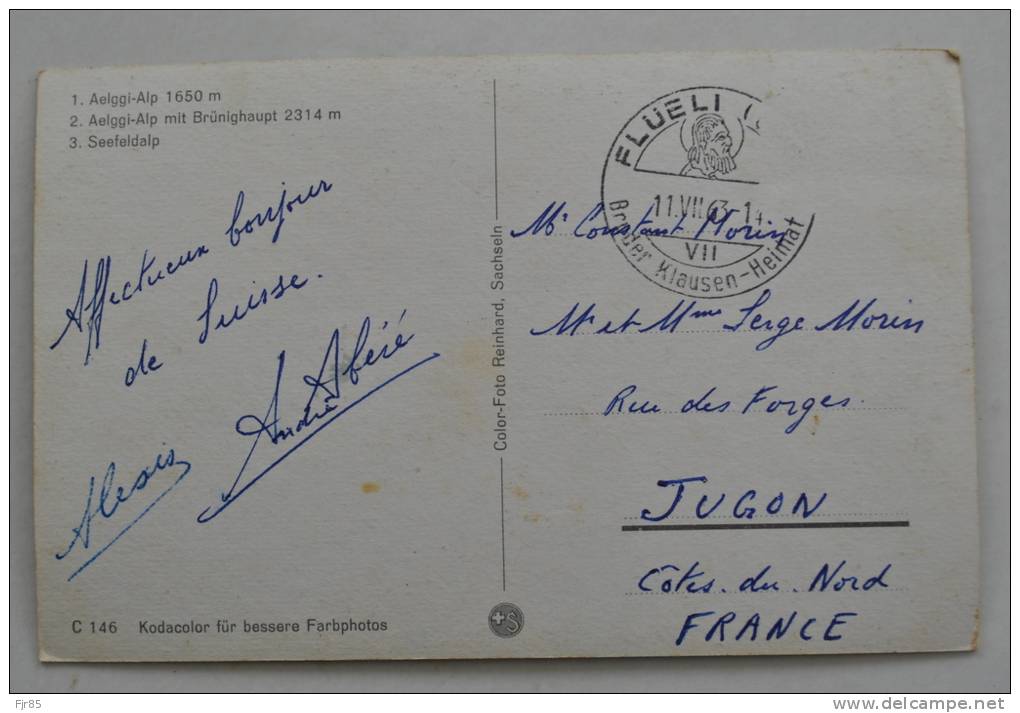 1. Aelggi-Alp 1650 m
2. Aelggi-Alp mit Brünighaupt 2314 m
3. Seefeldalp
Affectueux bonjour
de Suisse.
André
Alexis
C 146 Kodacolor für bessere Farbphotos
Color-Foto Reinhard, Sachseln
+S
FLÜELI (
11.VII.63-1
VII
Bruder Klausen-Heimat
Mr Constant Morin
Mr et Mme Serge Morin
Rue des Forges.
JUGON
Côtes. du. Nord
FRANCE
Fjr85
delcampe.net